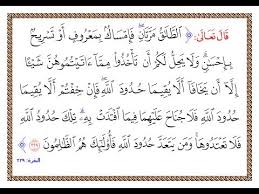 قَالَ تَعَالَىٰ: ﴿ ٱلطَّلَٰقُ مَرَّتَانِۖ فَإِمۡسَاكُۢ بِمَعۡرُوفٍ أَوۡ تَسۡرِيحُۢ
بِإِحۡسَٰنٖۗ وَلَا يَحِلُّ لَكُمۡ أَن تَأۡخُذُواْ مِمَّآ ءَاتَيۡتُمُوهُنَّ شَيۡـًٔا
إِلَّآ أَن يَخَافَآ أَلَّا يُقِيمَا حُدُودَ ٱللَّهِۖ فَإِنۡ خِفۡتُمۡ أَلَّا يُقِيمَا
حُدُودَ ٱللَّهِ فَلَا جُنَاحَ عَلَيۡهِمَا فِيمَا ٱفۡتَدَتۡ بِهِۦۗ تِلۡكَ حُدُودُ ٱللَّهِ
فَلَا تَعۡتَدُوهَاۚ وَمَن يَتَعَدَّ حُدُودَ ٱللَّهِ فَأُوْلَٰٓئِكَ هُمُ ٱلظَّٰلِمُونَ
٢٢٩ ﴾ البقرة: ٢٢٩